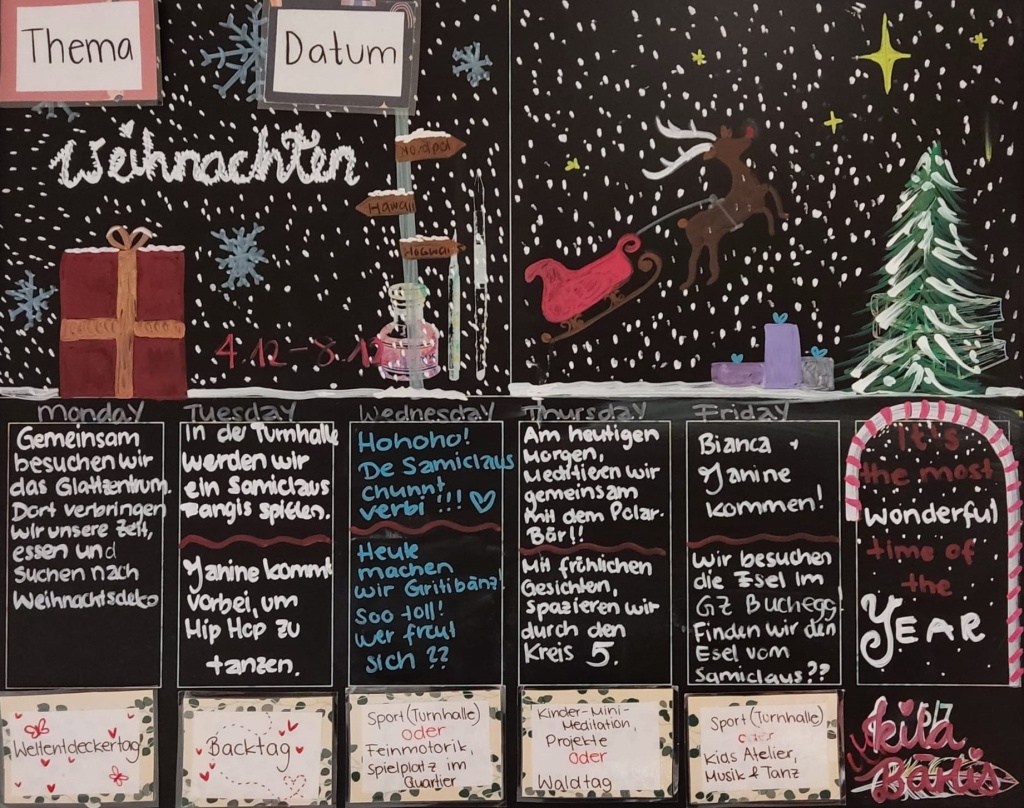 Thema
Datum
Weihnachten
Nordpol
Hawaii
4.12 – 8.12
Monday
Gemeinsam
besuchen wir
das Glattzentrum.
Dort verbringen
wir unsere Zeit,
essen und
suchen nach
Weihnachtsdeko
Tuesday
In der Turnhalle
werden wir
ein Samiclaus
Fangis spielen.
Janine kommt
vorbei, um
Hip Hop zu
tanzen.
Wednesday
Hohoho!
De Samiclaus
chunnt
verbi !!!
Heute
machen
wir Gritibänz!
Soo toll!
Wer freut
sich ??
Thursday
Am heutigen
Morgen,
meditieren wir
gemeinsam
mit dem Polar-
Bär!!
Mit fröhlichen
Gesichten,
spazieren wir
durch den
Kreis 5.
Friday
Bianca +
Janine
kommen!
Wir besuchen
die Esel im
GZ Buchegg!
Finden wir den
Esel vom
Samiclaus??
It's
the most
wonderful
time of
the
YEAR
Weltentdeckertag
Backtag
Sport (Turnhalle)
oder
Feinmotorik,
Spielplatz im
Quartier
Kinder-Mini-
Meditation,
Projekte
oder
Waldtag
Sport (Turnhalle)
oder
Kids Atelier,
Musik & Tanz
kita